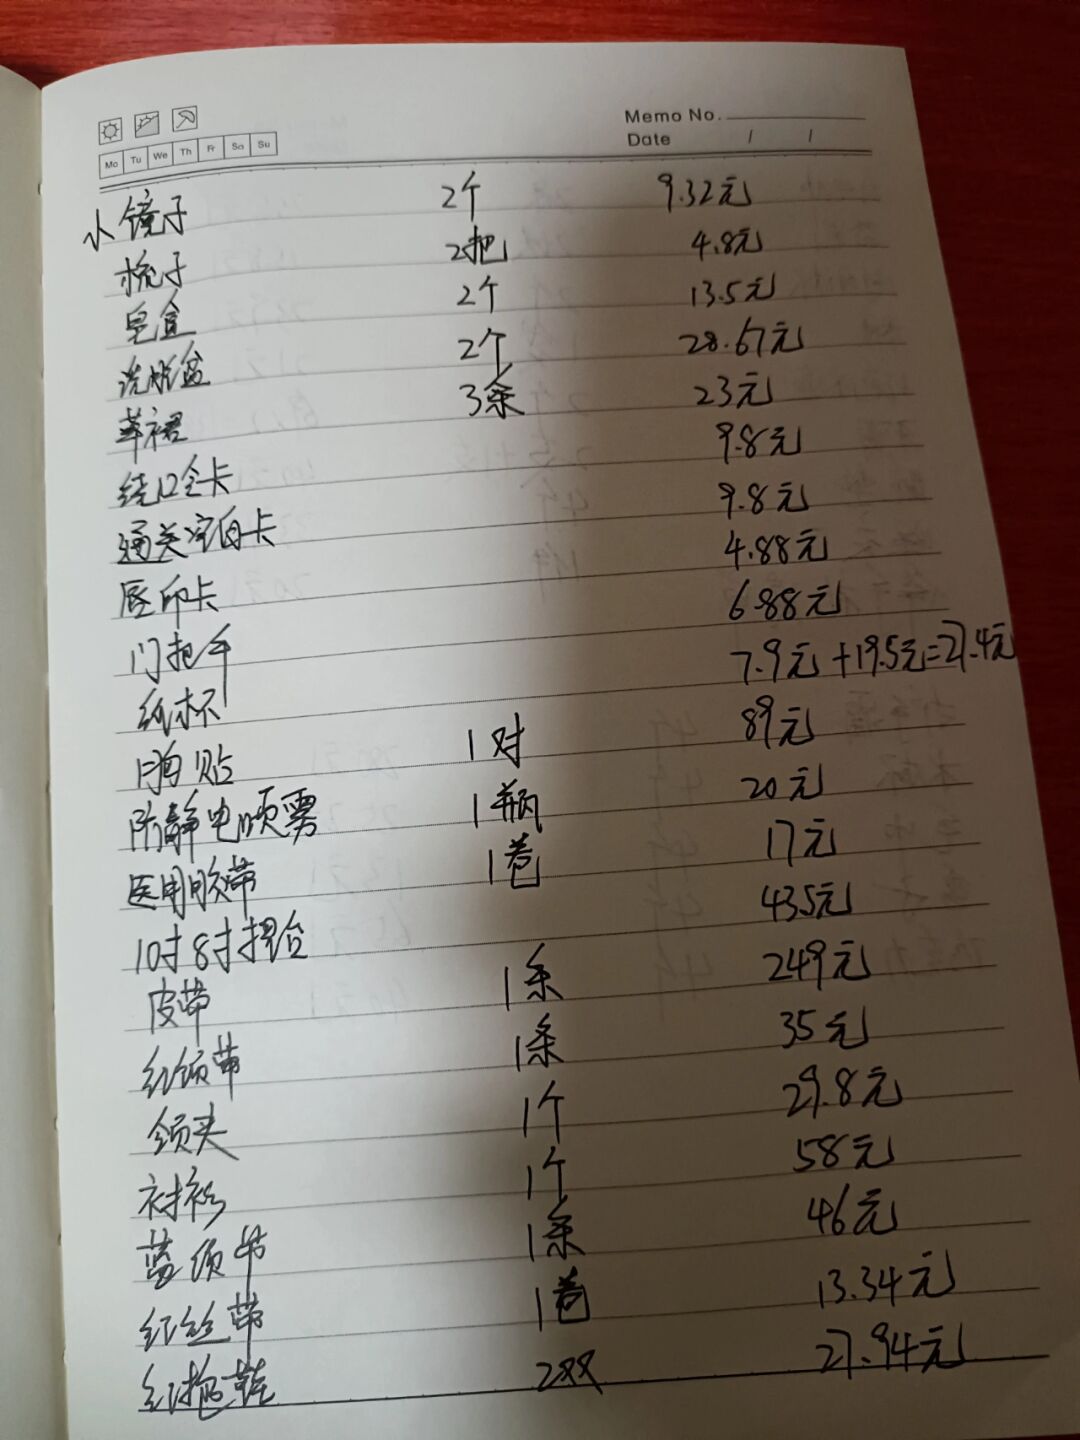 Memo No.
Date / /
Mo Tu We Th Fr Sa Su
小镜子 2个 9.32元
梳子 2把 4.8元
皂盒 2个 13.5元
洗脸盆 2个 28.67元
苹裙 3条 23元
绕口令卡 9.8元
通关宝自卡 9.8元
唇印卡 4.88元
门把手 6.88元
纸杯 7.9元+19.5元=27.4元
胸贴 1对 89元
防静电喷雾 1瓶 20元
医用胶带 1卷 17元
10寸8寸摆台 43.5元
皮带 1条 249元
红领带 1条 35元
领夹 1个 29.8元
衬衫 1个 58元
蓝领带 1条 46元
红丝带 1卷 13.34元
红拖鞋 2双 27.94元